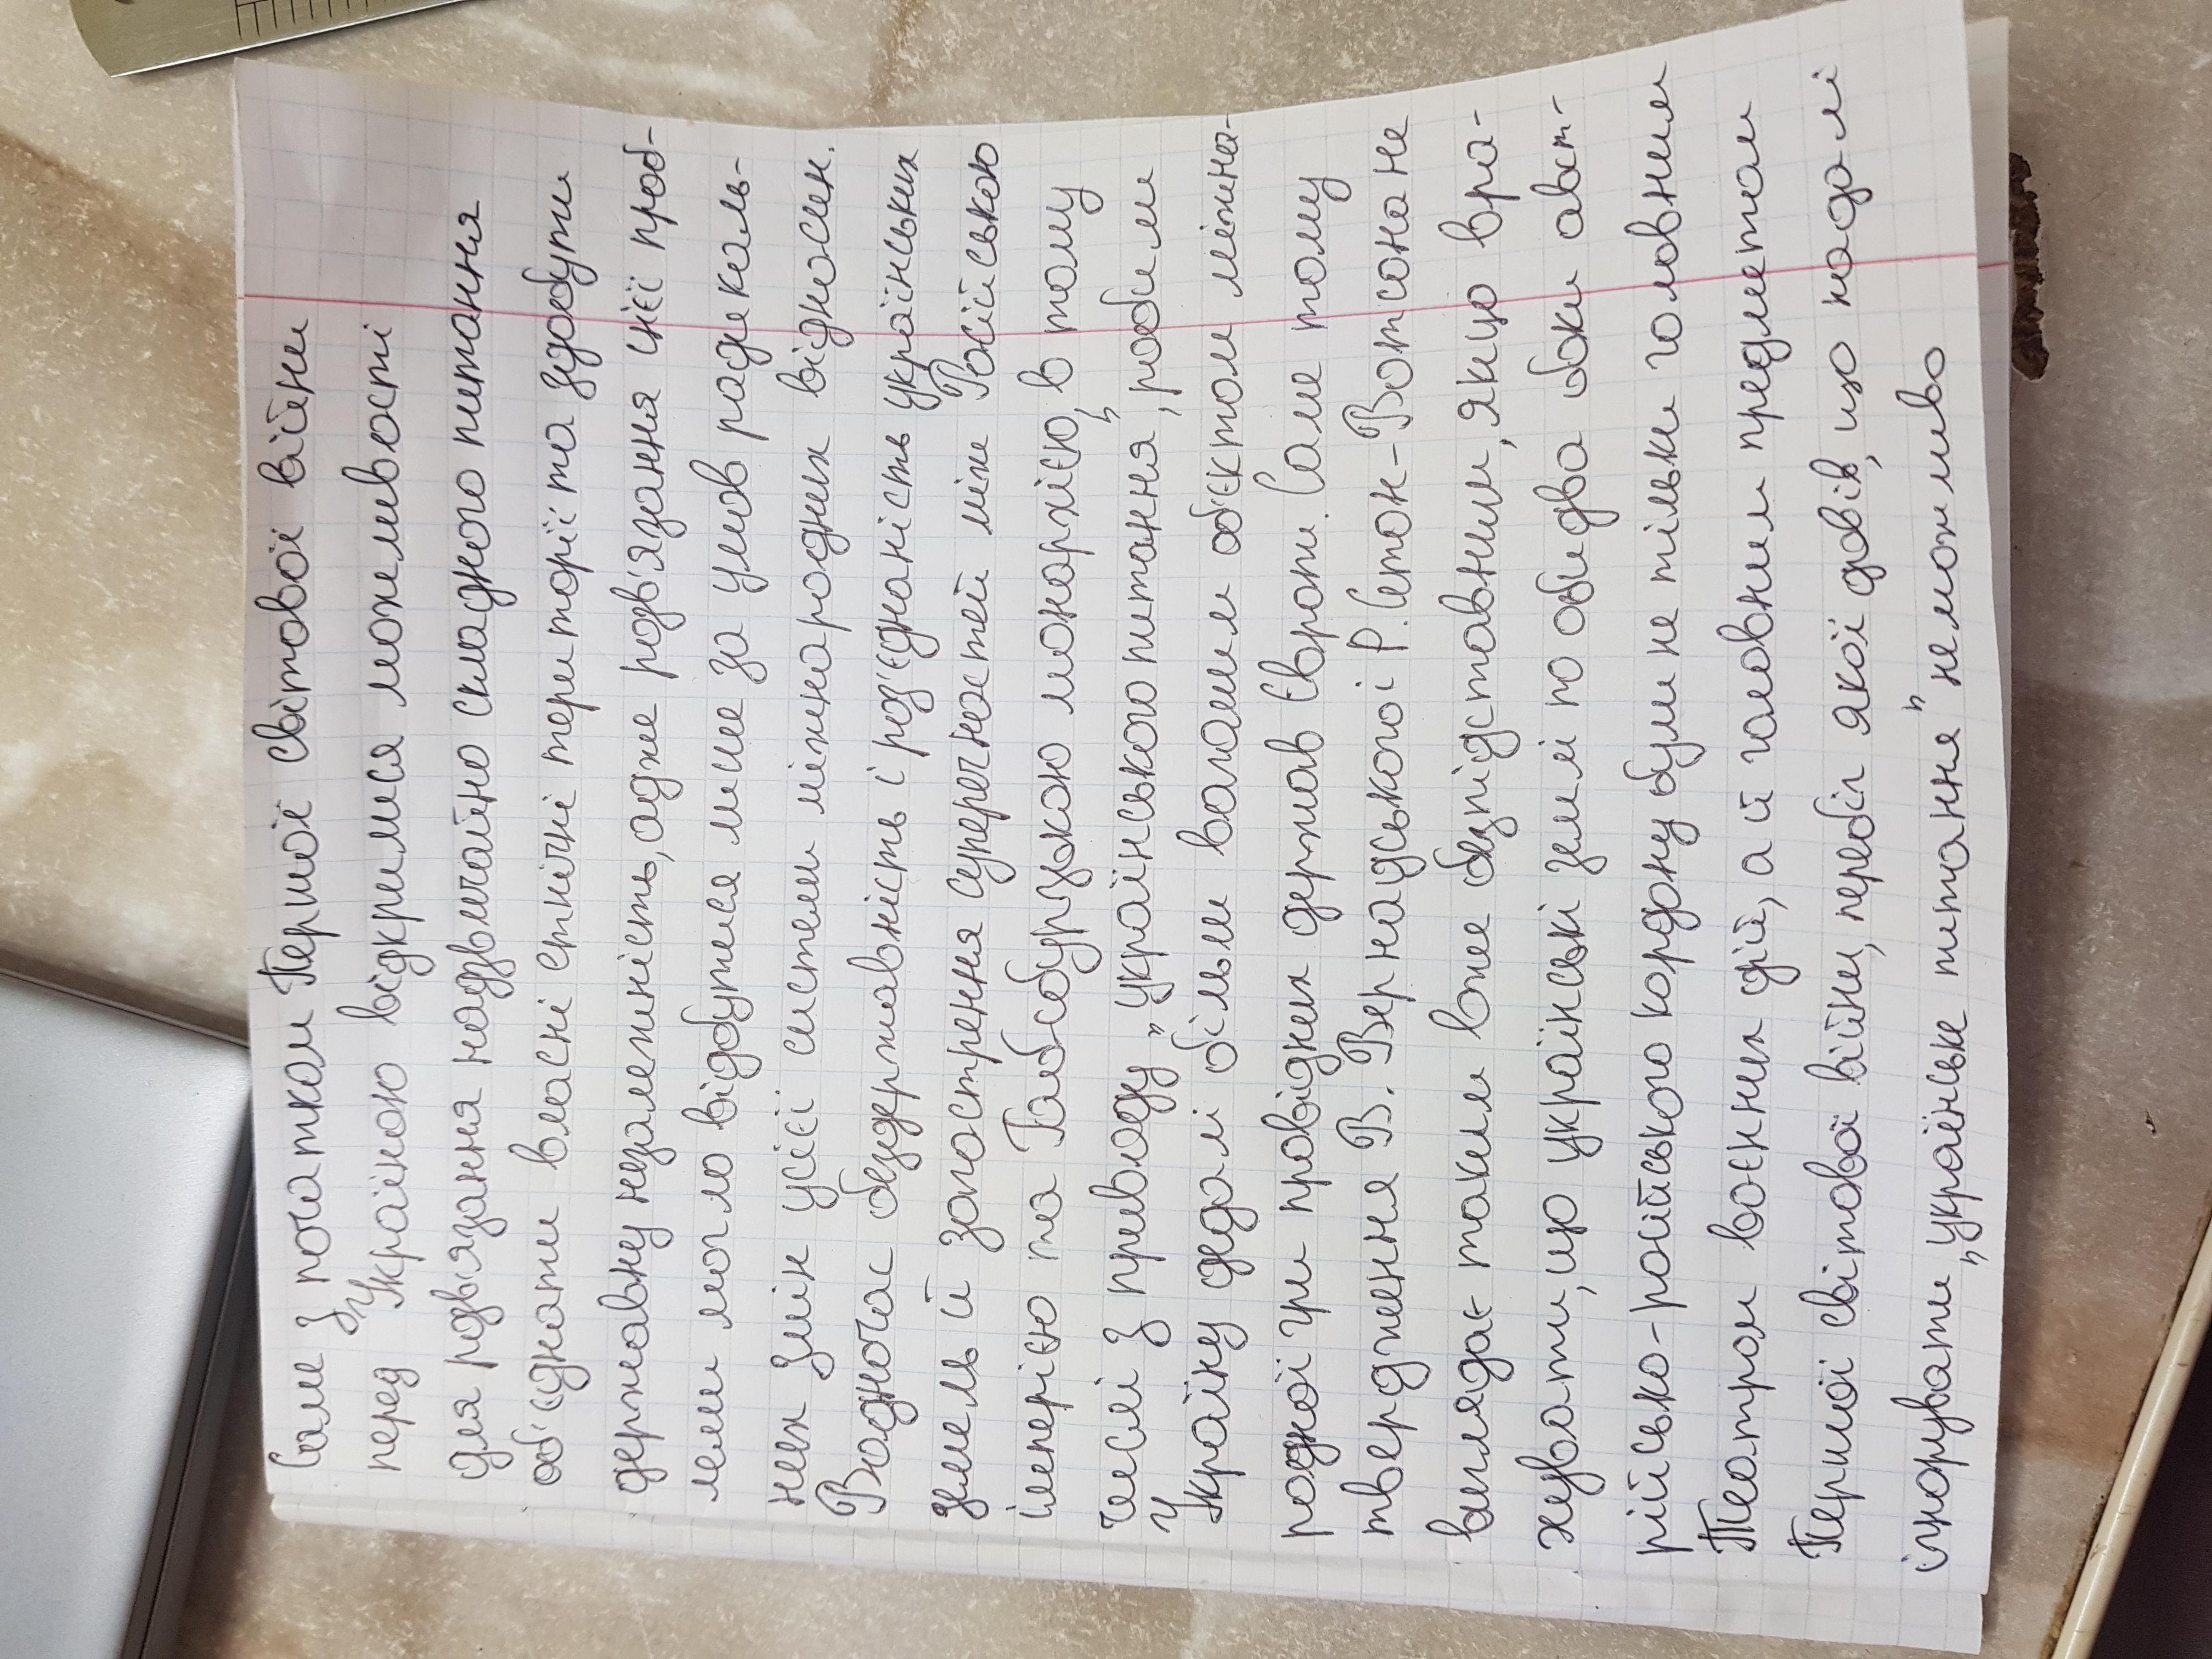 Саме з початком Першої світової війни
перед Україною відкрилися можливості
для розв'язання надзвичайно складного питання
об'єднати власні етнічні території та здобути
державну незалежність, адже розв'язання цієї проб-
леми могло відбутися лише за умов радикаль-
них змін усієї системи міжнародних відносин.
Водночас бездержавність і роз'єднаність українських
земель й загострення суперечностей між Російською
імперією та Габсбурзькою монархією, в тому
числі з приводу „українського питання", робили
Україну дедалі більш вагомим об'єктом міжна-
родної гри провідних держав Європи. Саме тому
твердження В. Вернадського і Р. Сетон-Вотсона не
виглядає таким вже безпідставним, якщо вра-
хувати, що українські землі по обидва боки авст-
рійсько-російського кордону були не тільки головним
Театром воєнних дій, а й головним предметом
Першої світової війни, перебіг якої довів, що надалі
ігнорувати „українське питання" неможливо